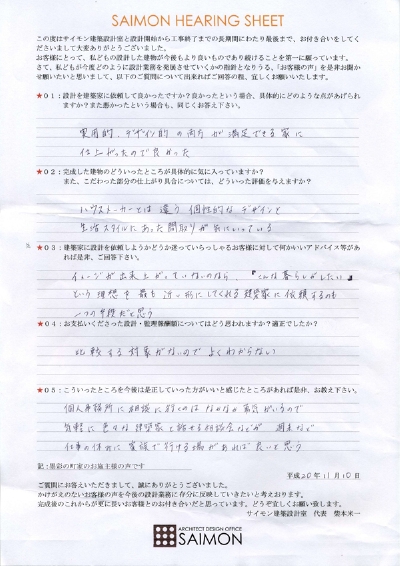 SAIMON HEARING SHEET
この度はサイモン建築設計室と設計開始から工事終了までの長期間にわたり最後まで、お付き合いをしてく
ださいまして大変ありがとうございました。
お客様にとって、私どもの設計した建物が今後もより良いものであり続けることを第一に願っています。
さて、私どもが今度どのように設計業務を発展させていくかの指針となりうる、「お客様の声」を是非お聞か
せ願いたいと思いまして、以下のご質問について出来ればご回答の程、宜しくお願いいたします。
★０１：設計を建築家に依頼して良かったですか？良かったという場合、具体的にどのような点があげられ
ますか？また悪かったという場合も、同じくお答え下さい。
実用的、デザイン的の両方が満足できる家に
仕上がったので良かった
★０２：完成した建物のどういったところが具体的に気に入っていますか？
また、こだわった部分の仕上がり具合については、どういった評価を与えますか？
ハウスメーカーとは違う個性的なデザインと
生活スタイルにあった間取りが気にいっている
★０３：建築家に設計を依頼しようかどうか迷っていらっしゃるお客様に対して何かいいアドバイス等があ
れば是非、ご回答下さい。
イメージが出来上がっていないのなら、『こんな暮らしがしたい』
という理想を最も近い形にしてくれる建築家に依頼するのも
一つの手段だと思う
★０４：お支払いくださった設計・監理報酬額についてはどう思われますか？適正でしたか？
比較する対象がないのでよくわからない
★０５：こういったところを今後は是正していった方がいいと感じたところがあれば是非、お教え下さい。
個人事務所に相談に行くのはなかなか勇気がいるので
気軽に色々な建築家と話せる相談会などが週末など
仕事の休みに家族で行ける場があれば良いと思う
記：墨彩の町家のお施主様の声です
平成20年11月10日
ご質問にお答えいただきまして、誠にありがとうございました。
かけがえのないお客様の声を今後の設計業務に存分に反映していきたいと考えております。
完成後のこれからが更に良いお客様とのお付き合いだと思っています。どうぞ宜しくお願い致します。
サイモン建築設計室　代表　柴本米一
ARCHITECT DESIGN OFFICE
SAIMON